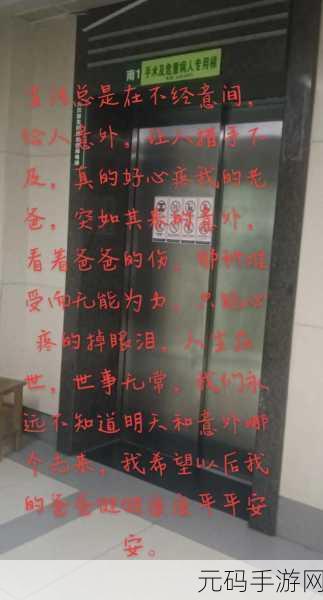 南1
手术及危重病人专用梯
生活总是在不经意间,
给人意外,让人措手不
及,真的好心疼我的老
爸,突如其来的意外,
看着爸爸的伤,那种难
受而无能为力,只能心
疼的掉眼泪,人生在
世,世事无常,我们永
远不知道明天和意外哪
个先来,我希望以后我
的爸爸健健康康平平安
安。
元码手游网